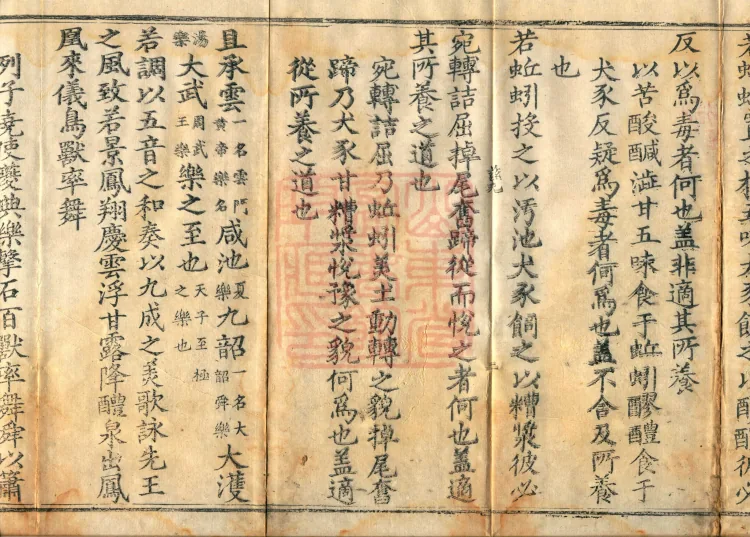 反以爲毒者何也盖非適其所養
以苦酸醎澁甘五味食于蚯蚓醪醴食于
犬豕反疑爲毒者何爲也盖不舎及所養
也
若蚯蚓投之以汚池犬豕飼之以糟漿彼必
宛轉詰屈掉尾奮蹄從而悅之者何也盖適
其所養之道也
宛轉詰屈乃蚯蚓美土動轉之貌掉尾奮
蹄乃犬豕甘糟漿悅豫之貌何爲也盖適
從所養之道也
且承雲一名雲門黃帝樂名咸池夏樂九韶一名大韶舜樂大濩
湯樂大武周武王樂樂之至也天子至極之樂也
若調以五音之和奏以九成之美歌詠先王
之風致若景鳳翔慶雲浮甘露降醴泉出鳳
凰來儀鳥獸率舞
列子堯使夔典樂擊石百獸率舞舜以簫